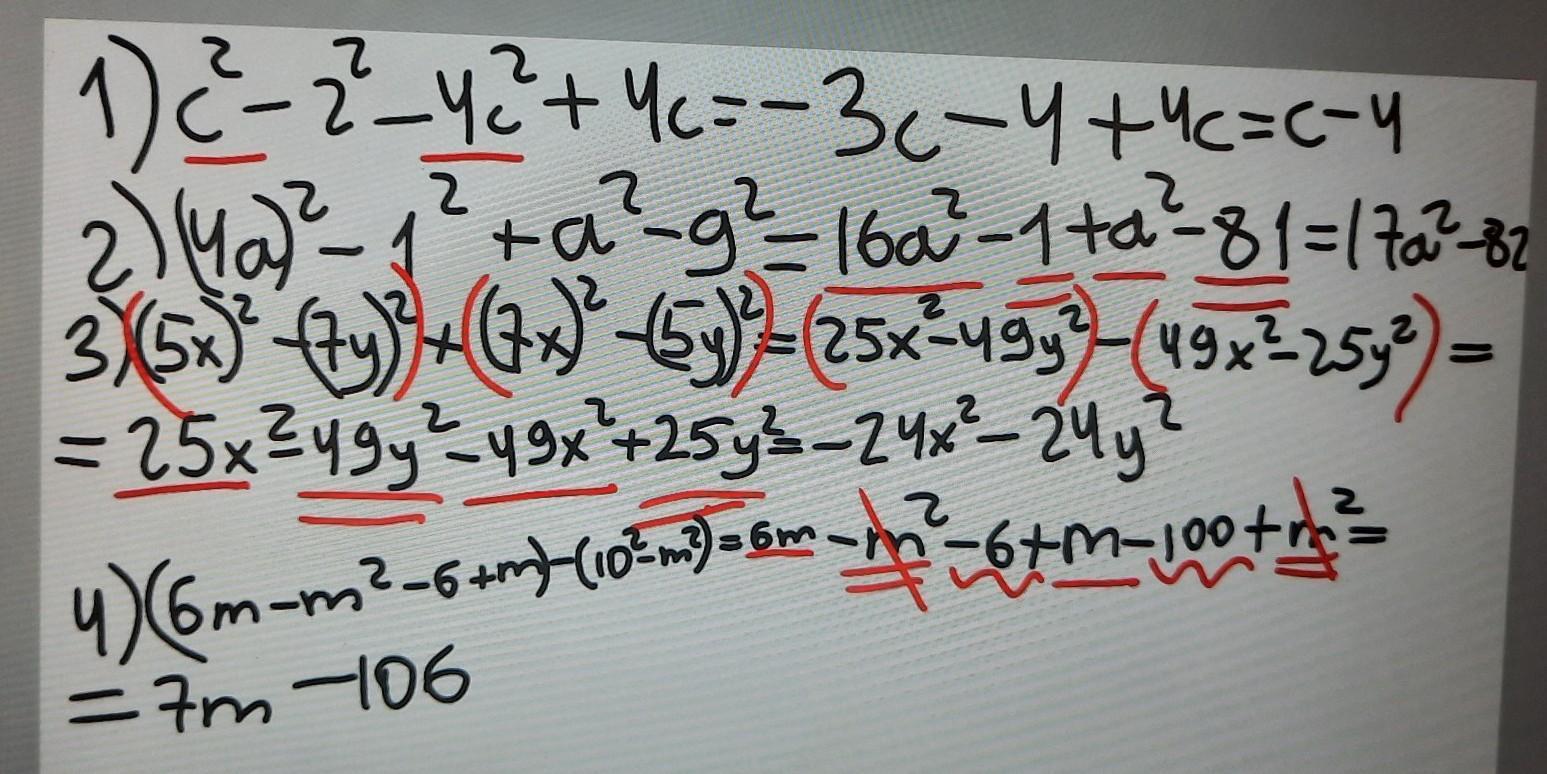 1) c² - 2² - 4c² + 4c = - 3c - 4 + 4c = c - 4
2) (4a)² - 1² + a² - 9² = 16a² - 1 + a² - 81 = 17a² - 82
3) ((5x)² - (7y)²) + ((7x)² - (5y)²) = (25x² - 49y²) - (49x² - 25y²) =
= 25x² - 49y² - 49x² + 25y² = - 24x² - 24y²
4) (6m - m² - 6 + m) - (10² - m²) = 6m - m² - 6 + m - 100 + m² =
= 7m - 106